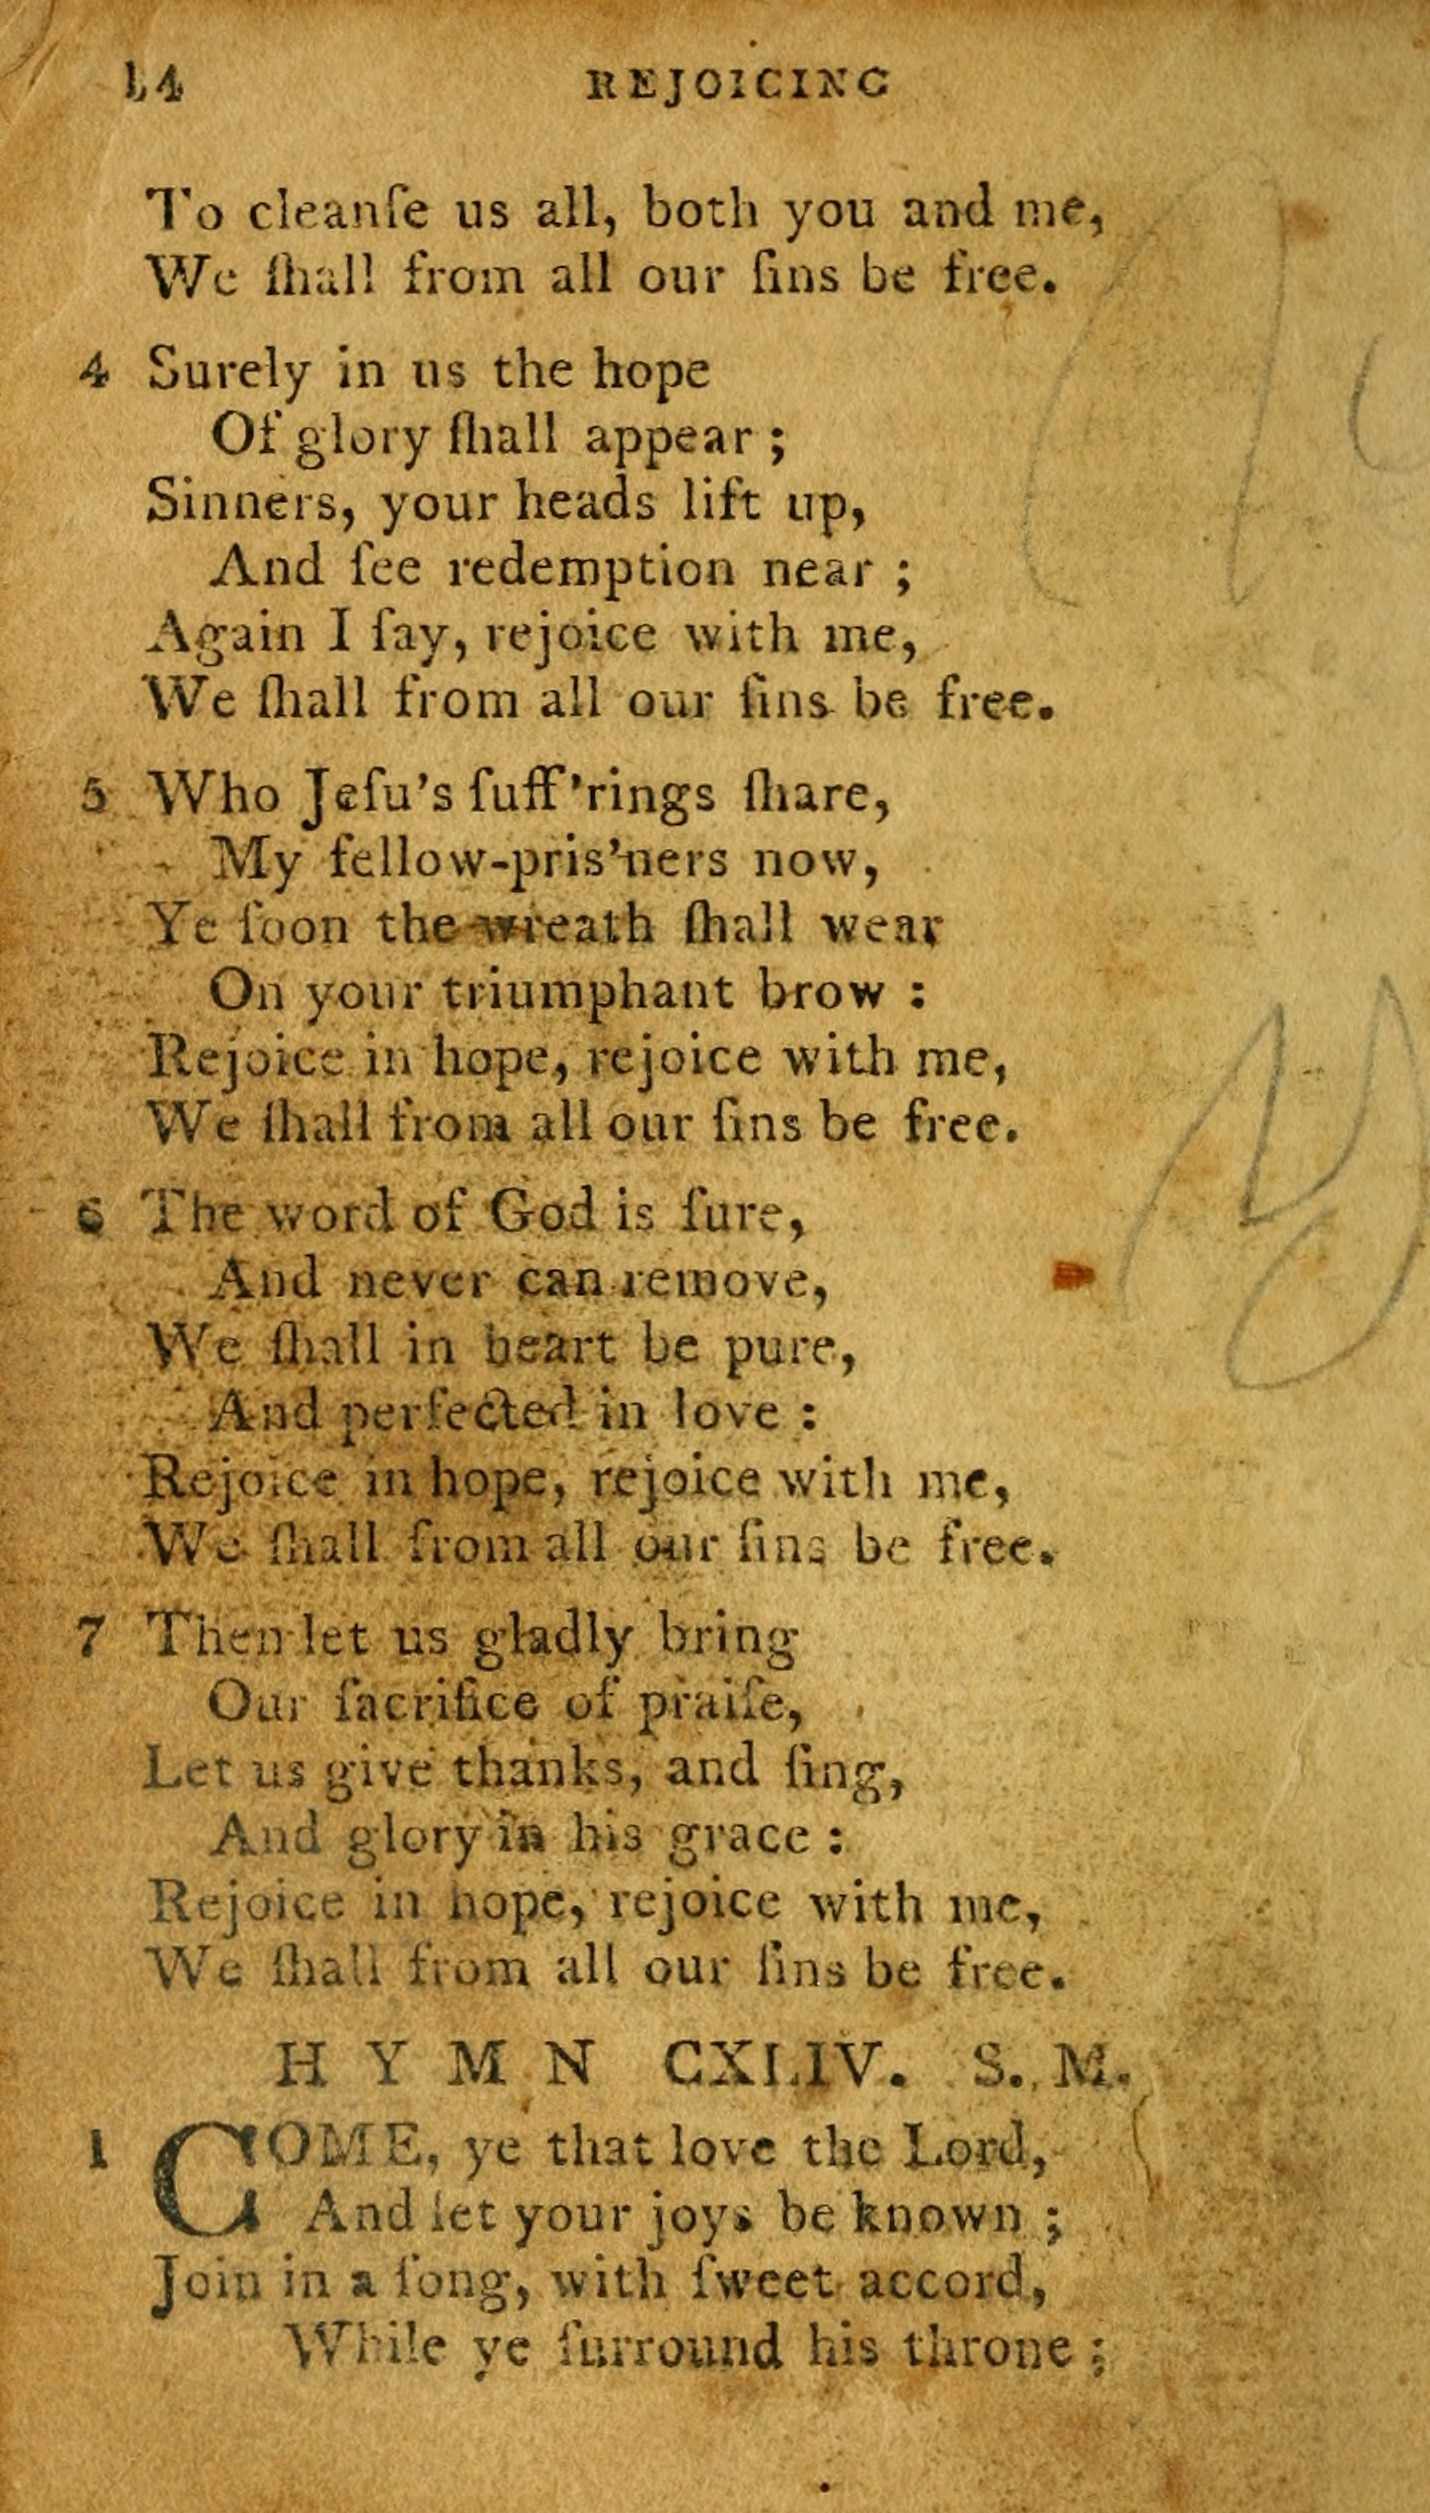 14 REJOICING
To cleanſe us all, both you and me,
We ſhall from all our ſins be free.
4 Surely in us the hope
Of glory ſhall appear ;
Sinners, your heads lift up,
And ſee redemption near ;
Again I ſay, rejoice with me,
We ſhall from all our ſins be free.
5 Who Jeſu's ſuff'rings ſhare,
My fellow-pris'ners now,
Ye ſoon the wreath ſhall wear
On your triumphant brow :
Rejoice in hope, rejoice with me,
We ſhall from all our ſins be free.
6 The word of God is ſure,
And never can remove,
We ſhall in heart be pure,
And perfected in love :
Rejoice in hope, rejoice with me,
We ſhall from all our ſins be free.
7 Then let us gladly bring
Our ſacrifice of praiſe,
Let us give thanks, and ſing,
And glory in his grace :
Rejoice in hope, rejoice with me,
We ſhall from all our ſins be free.
HYMN CXLIV. S. M.
1 COME, ye that love the Lord,
And let your joys be known ;
Join in a ſong, with ſweet accord,
While ye ſurround his throne ;